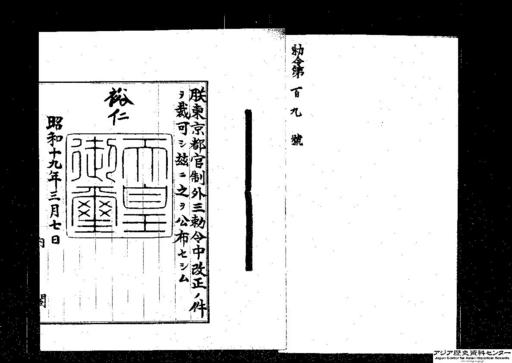 勅令第百九號
朕東京都官制外三勅令中改正ノ件
ヲ裁可シ茲ニ之ヲ公布セシム
裕仁
天皇御璽
昭和十九年三月七日
内閣
アジア歴史資料センター
Japan Center for Asian Historical Records